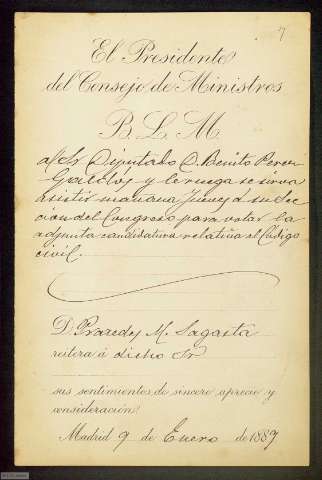 7
El Presidente
del Consejo de Ministros
B. L. M.
al Sr Diputado D. Benito Perez
Galdós y le ruega se sirva
asistir mañana Jueves á su Sec
ción del Congreso para votar la
adjunta candidatura relativa al Código
civil.
D. Praxedes M. Sagasta
reitera á dicho Sr
sus sentimientos de sincero aprecio y
consideración.
Madrid 9 de Enero de 1889